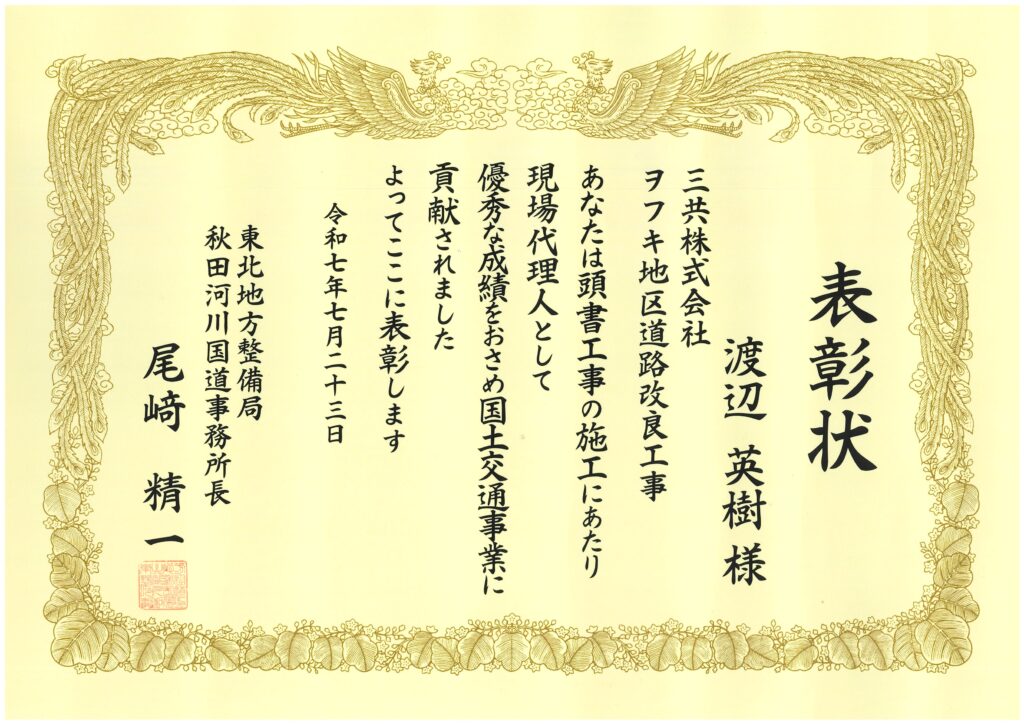 表彰状
渡辺 英樹 様
三共株式会社
ヲフキ地区道路改良工事
あなたは頭書工事の施工にあたり
現場代理人として
優秀な成績をおさめ国土交通事業に
貢献されました
よってここに表彰します
令和七年七月二十三日
東北地方整備局
秋田河川国道事務所長
尾﨑 精一